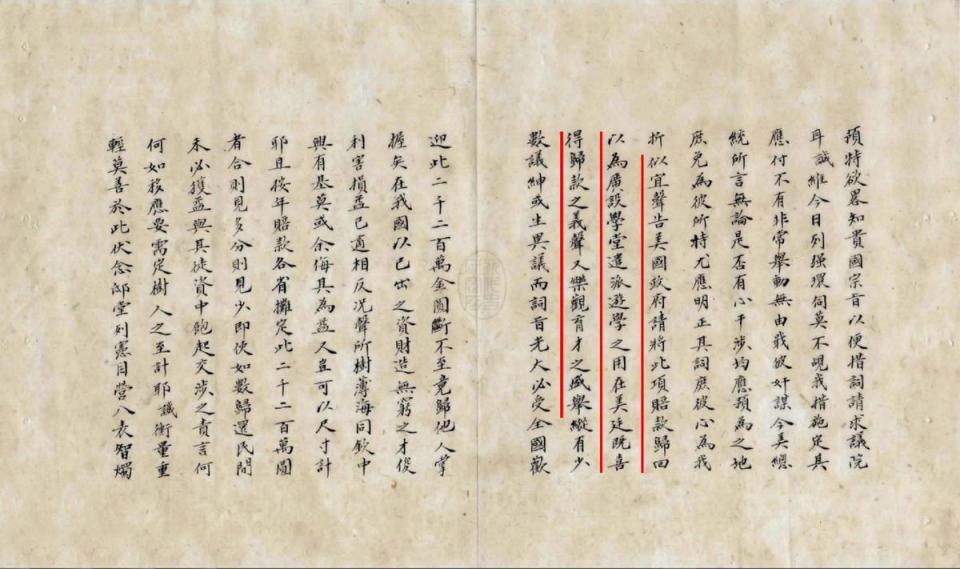 項特欲畧知貴國宗旨以便措詞請求議院
耳誠維今日列强環伺莫不覘我措施定其
應付不有非常舉動無由戢彼奸謀今美總
統所言無論是否有心干涉均應預為之地
庶免為彼所特尤應明正其詞庶彼心為我
折似宜聲告美國政府請將此項賠款歸回
以為廣設學堂遣派遊學之用在美廷既喜
得歸款之義聲又樂觀育才之盛舉縱有少
數議紳或生異議而詞旨光大必受全國歡
迎此二千二百萬金圓斷不至竟歸他人掌
握矣在我國以已出之資財造無窮之才俊
利害損益已適相反況聲所樹薄海同欽中
興有基莫或余侮其為益又豈可以尺寸計
耶且按年賠款各省攤定此二千二百萬圓
者合則見多分則見少即使如數歸還民間
未必獲益與其徒資中飽起交涉之責言何
何如移應要需定樹人之至計耶誠衡量重
輕莫善於此伏念邸堂列憲目營八表智燭